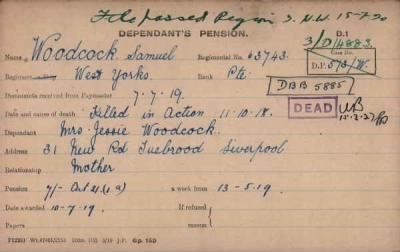 File passed Region 2. N.W. 15-7-20
DEPENDANT'S PENSION.
D.1
3/D/4883.
Name Woodcock. Samuel
Regimental No. 63743.
Case No.
D.P. 573/W.
Regiment West Yorks.
Rank Pte.
DBB 5885
Documents received from Paymaster 7-7-19.
Date and cause of death Killed in Action 11-10-18.
DEAD
Dependant Mrs Jessie Woodcock.
Address 31 New Rd Tuebrood Liverpool
Relationship Mother
Pension 7/- Art 21 (1a) a week from 13-5-19.
Date awarded 10-7-19.
If refused
Papers
reason
Gp. 150